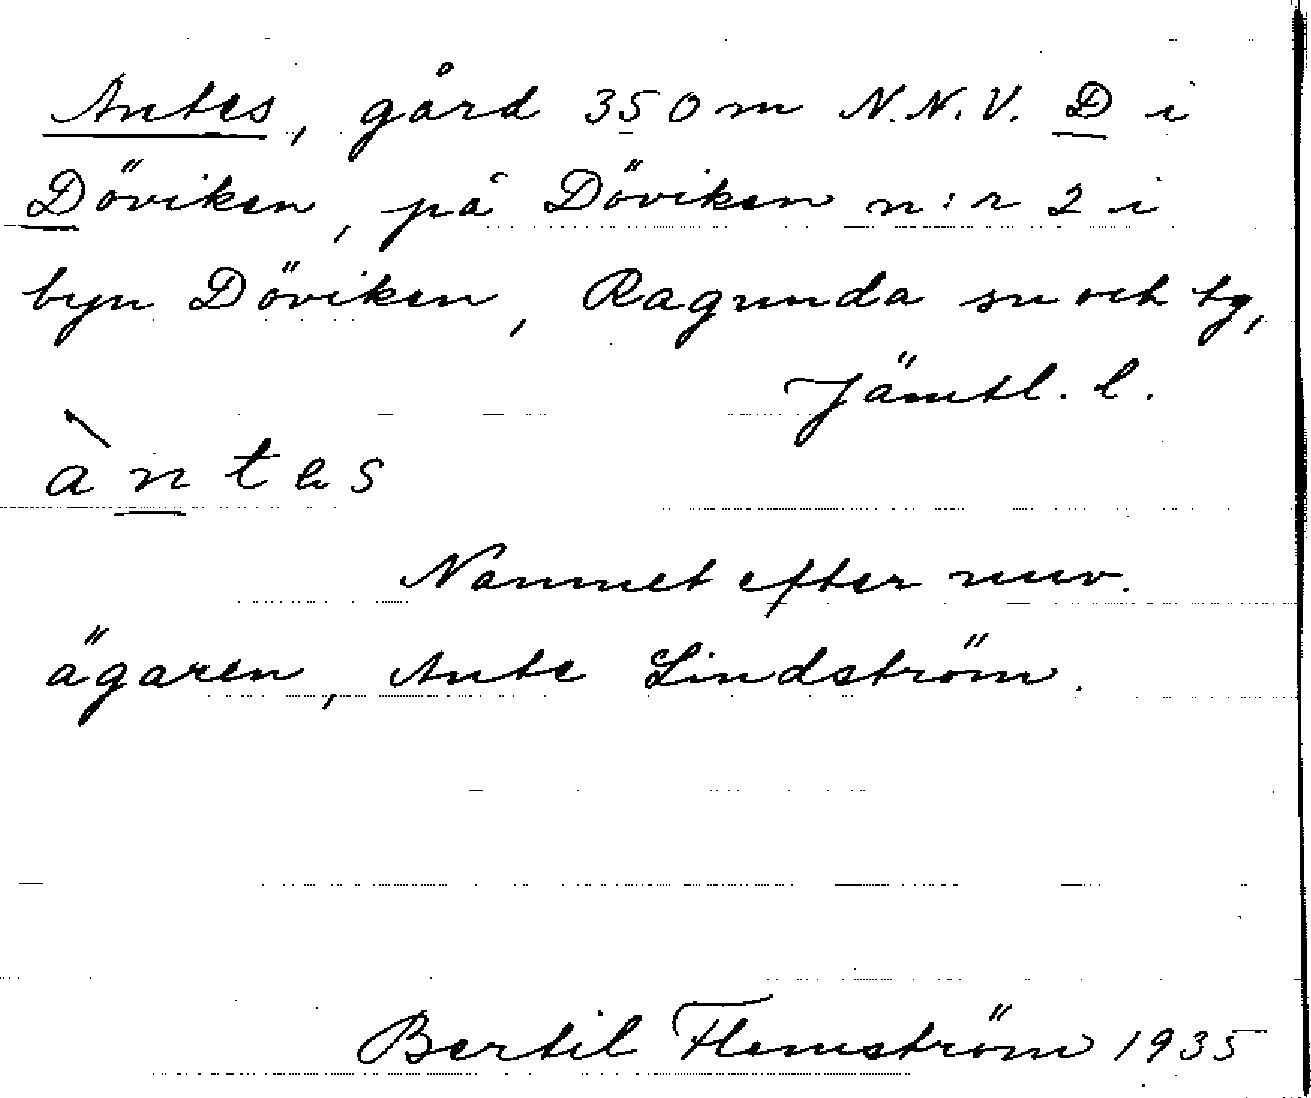 Antes, gård 350 m N.N.V. D i
Döviken, på Döviken n:r 2 i
byn Döviken, Ragunda sn och tg,
Jämtl. l.
àntes
Namnet efter nuv.
ägaren, Ante Lindström.
Bertil Flemström 1935